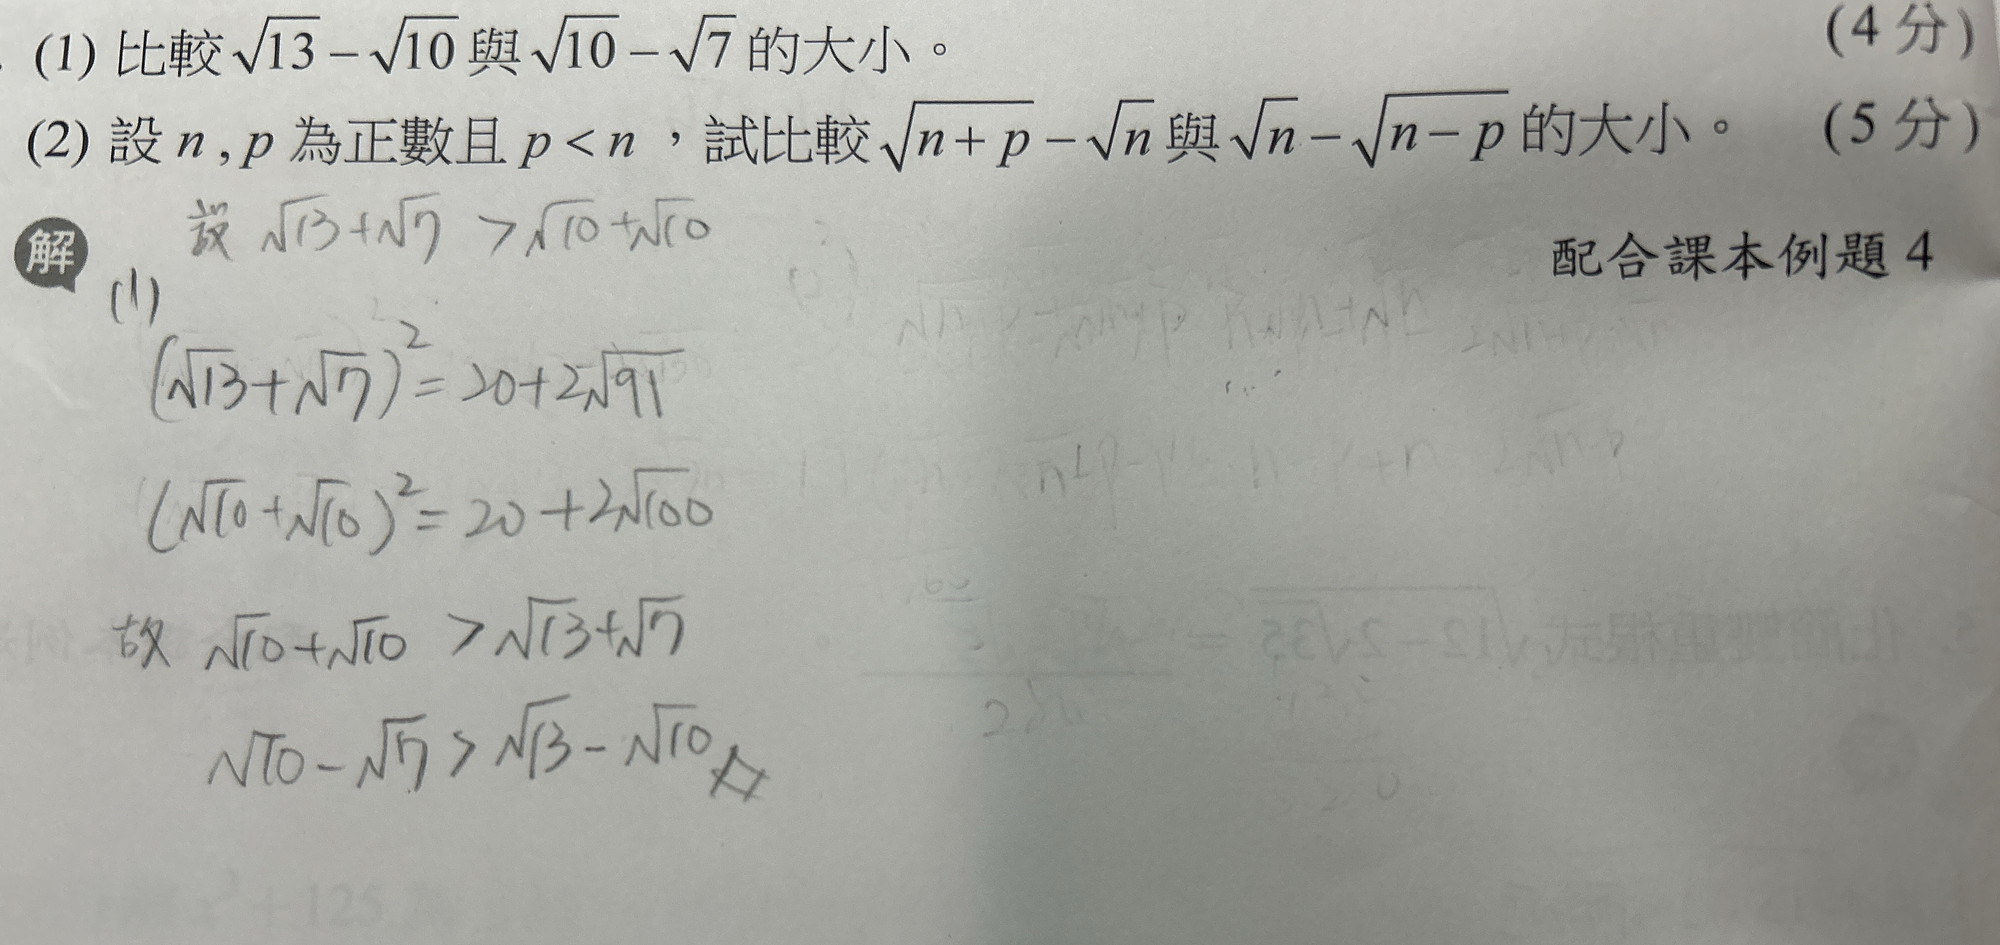 (1) 比較√13 − √10 與√10 − √7 的大小。 (4 分)
(2) 設 n , p 為正數且 p < n ，試比較√(n + p) − √n 與√n − √(n − p) 的大小。 (5 分)
設 √13+√7 > √10+√10
解
配合課本例題 4
(1)
(√13+√7)² = 20+2√91
(√10+√10)² = 20+2√100
故 √10+√10 > √13+√7
√10 − √7 > √13 − √10